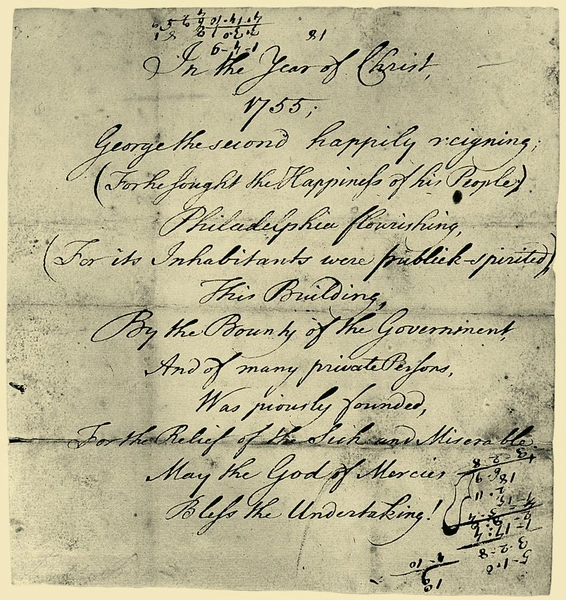 In the Year of Christ,
1755;
George the second happily reigning;
(For he sought the Happiness of his People)
Philadelphia flourishing,
(For its Inhabitants were publick-spirited)
This Building,
By the Bounty of the Government,
And of many private Persons,
Was piously founded,
For the Relief of the Sick and Miserable
May the God of Mercies
Bless the Undertaking!